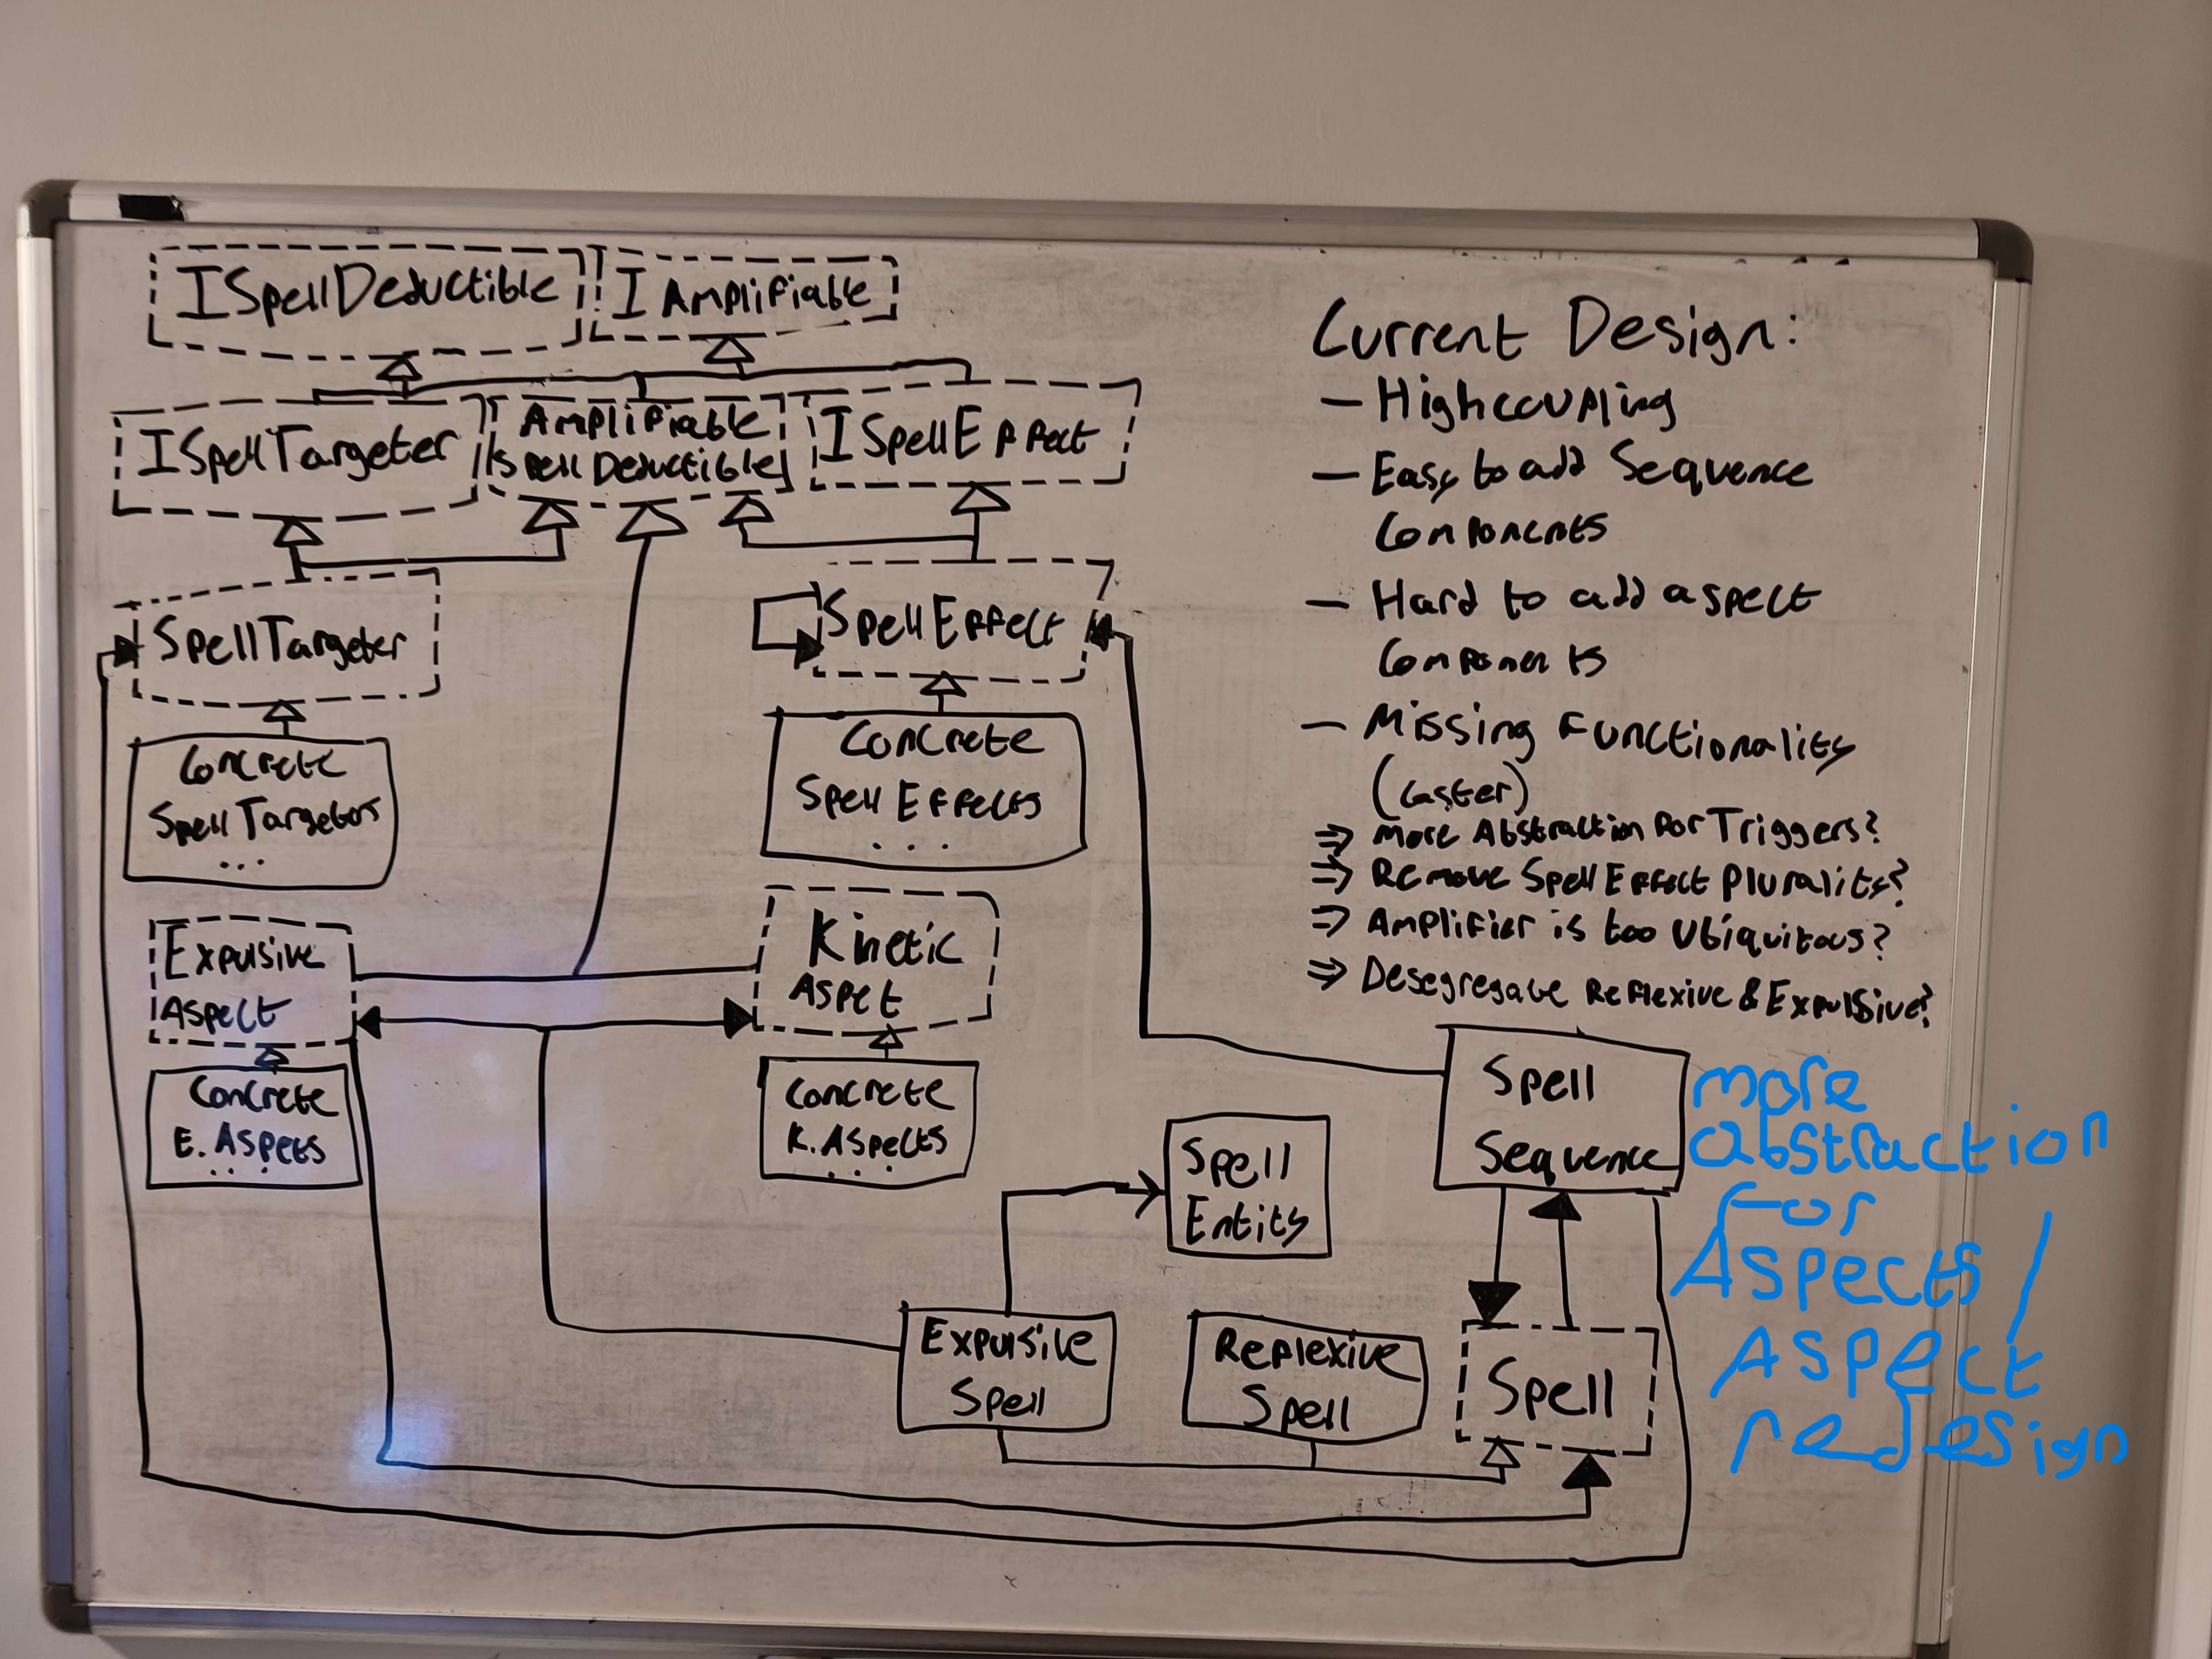 ISpellDeductible
IAmplifiable
ISpellTargeter
Amplifiable
Spell Deductible
ISpellEffect
SpellTargeter
SpellEffect
Concrete
Spell Targeters
...
Concrete
Spell Effects
...
Expulsive
Aspect
Kinetic
Aspet
Concrete
E. Aspects
...
Concrete
K. Aspects
...
Spell
Entity
Expulsive
Spell
Reflexive
Spell
Spell
Sequence
Spell
Current Design:
- High coupling
- Easy to add Sequence
Components
- Hard to add aspect
Components
- Missing Functionality
(caster)
⇒ More Abstraction for Triggers?
⇒ Remove Spell Effect Plurality?
⇒ Amplifier is too Ubiquitous?
⇒ Desegregate Reflexive & Expulsive?
more
abstraction
for
Aspects /
Aspect
redesign